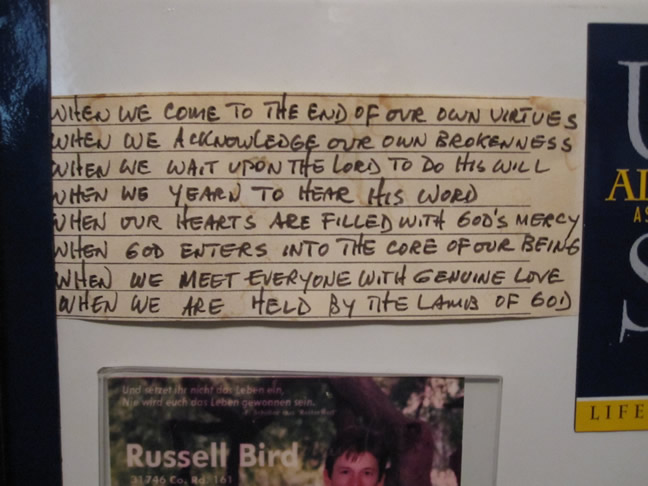 WHEN WE COME TO THE END OF OUR OWN VIRTUES
WHEN WE ACKNOWLEDGE OUR OWN BROKENNESS
WHEN WE WAIT UPON THE LORD TO DO HIS WILL
WHEN WE YEARN TO HEAR HIS WORD
WHEN OUR HEARTS ARE FILLED WITH GOD'S MERCY
WHEN GOD ENTERS INTO THE CORE OF OUR BEING
WHEN WE MEET EVERYONE WITH GENUINE LOVE
WHEN WE ARE HELD BY THE LAMB OF GOD
U
AL
AS
S
LIFE
Und setzet ihr nicht das Leben ein,
Nie wird euch das Leben gewonnen sein.
Russell Bird
31746 Co. Rd. 161